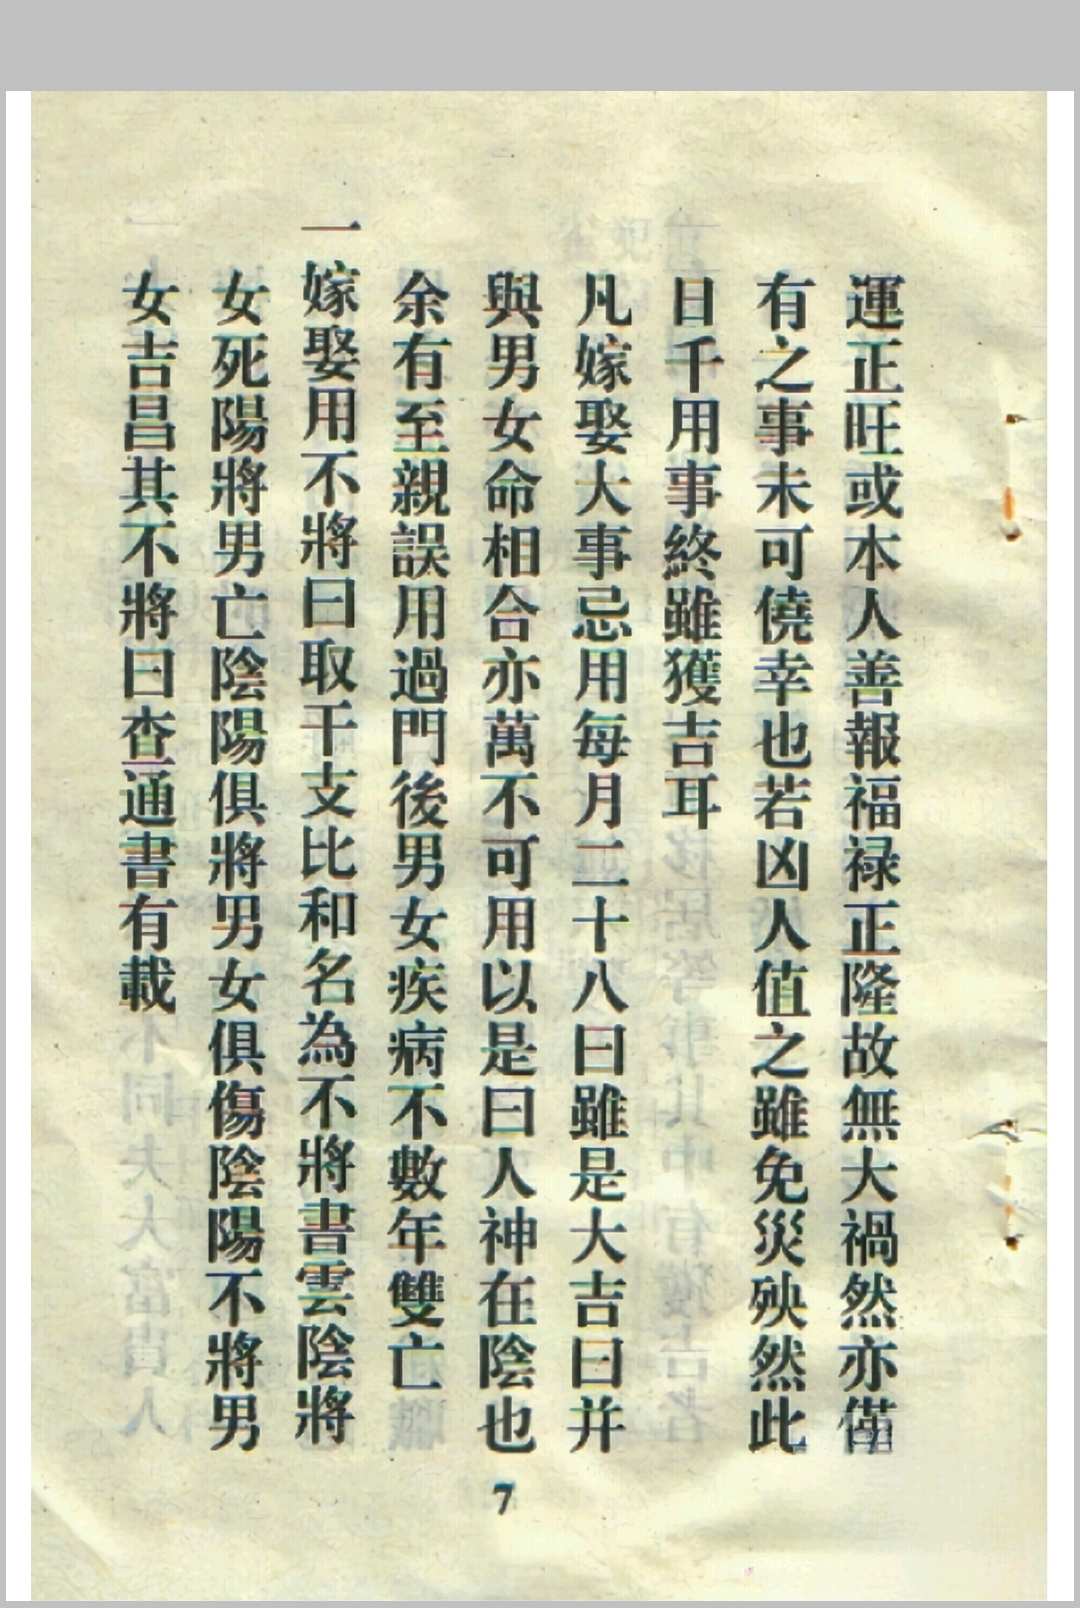 運正旺或本人善報福祿正隆故無大禍然亦僅
有之事未可僥幸也若凶人值之雖免災殃然此
日千用事終雖獲吉耳
凡嫁娶大事忌用每月二十八曰雖是大吉曰并
與男女命相合亦萬不可用以是曰人神在陰也
余有至親誤用過門後男女疾病不數年雙亡
一嫁娶用不將曰取干支比和名為不將書雲陰將
女死陽將男亡陰陽俱將男女俱傷陰陽不將男
女吉昌其不將曰查通書有載
7